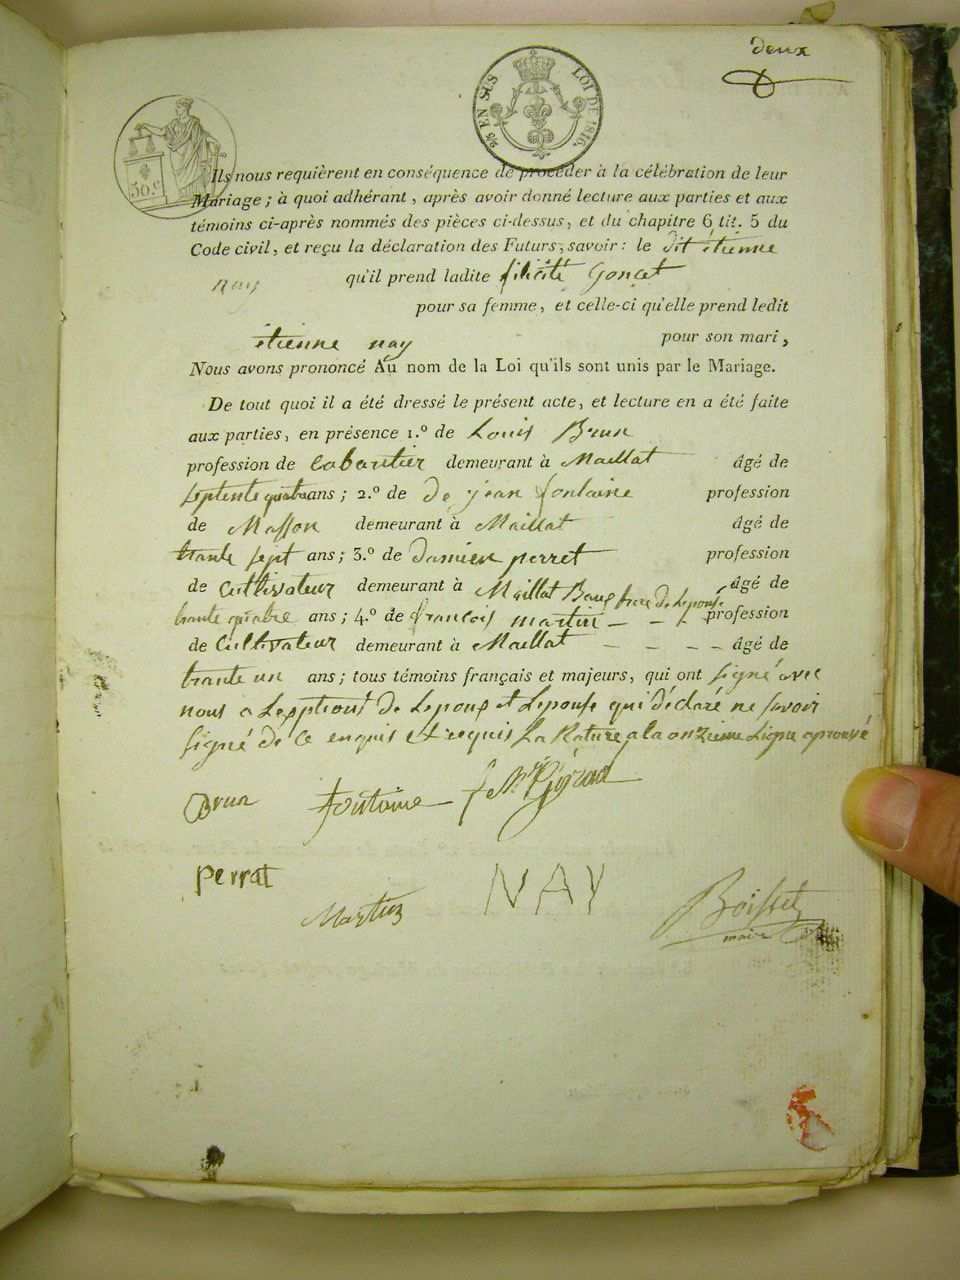 deux
25/c EN SUS LOI DE 1816.
50.c
Ils nous requièrent en conséquence de procéder à la célébration de leur
Mariage ; à quoi adhérant, après avoir donné lecture aux parties et aux
témoins ci-après nommés des pièces ci-dessus, et du chapitre 6 tit. 5 du
Code civil, et reçu la déclaration des Futurs, savoir : le dit étienne
nay qu'il prend ladite félicité Goncet
pour sa femme, et celle-ci qu'elle prend ledit
étienne nay pour son mari,
Nous avons prononcé Au nom de la Loi qu'ils sont unis par le Mariage.
De tout quoi il a été dressé le présent acte, et lecture en a été faite
aux parties, en présence 1.º de Louis Brun
profession de Cabartier demeurant à Maillat âgé de
septente quatre ans ; 2.º de De jean fontaine profession
de Masson demeurant à Maillat âgé de
trante sept ans ; 3.º de damien perret profession
de Cultivateur demeurant à Maillat Beaufrere de Lepouse âgé de
trante quatre ans ; 4.º de francois martin profession
de Cultivateur demeurant à Maillat âgé de
trante un ans ; tous témoins français et majeurs, qui ont signé avec
nous a Lexptions de Lepoux et Lepouse qui déclaré ne savoir
signé de ce enquis et requis La Rature a la onzieme Ligne aprouvé
Brun fontaine
perrat Martin NAY Boisset
maire